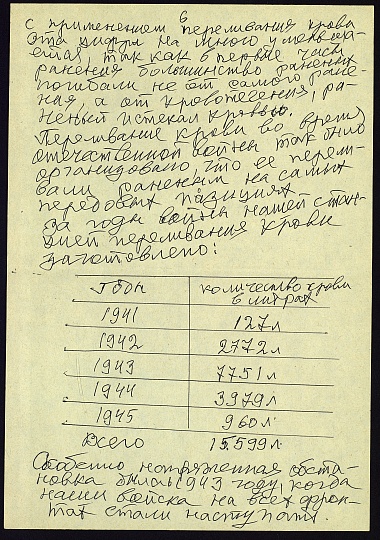 6
с применением переливания крови
эта цифра на много уменьша-
ется, так как в первые часы
ранения большинство раненых
погибали не от самого ране-
ния, а от кровотечения, ра-
неный истекал кровью.
Переливание крови во время
отечественной войны так было
организовано, что ее перели-
вали раненым на самых
передовых позициях.
За годы войны нашей стан-
цией переливания крови
заготовлено:
годы количество крови
в литрах
1941 127 л
1942 2772 л
1943 7751 л
1944 3979 л
1945 960 л.
Всего 15.599 л.
Особенно напряженная обста-
новка была в 1943 году, когда
наши войска на всех фрон-
тах стали наступать.